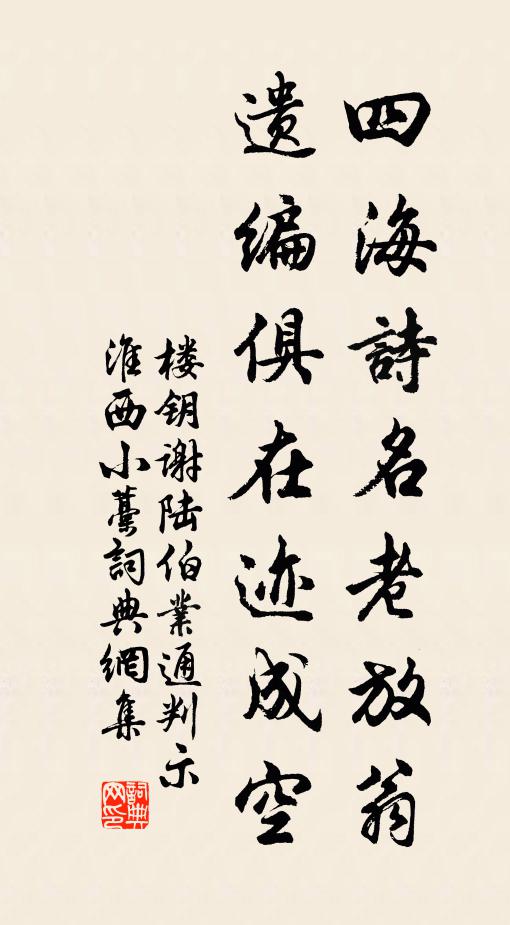 四海詩名老放翁
遗编俱在迹成空
楼钥谢陆伯業通判示
淮西小藁詞典網集
詞典
网印